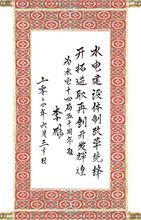 水电建设体制改革先锋
开拓进取再创开发辉煌
为水电十四局五十周年题
李鹏
二〇〇四年六月三十日